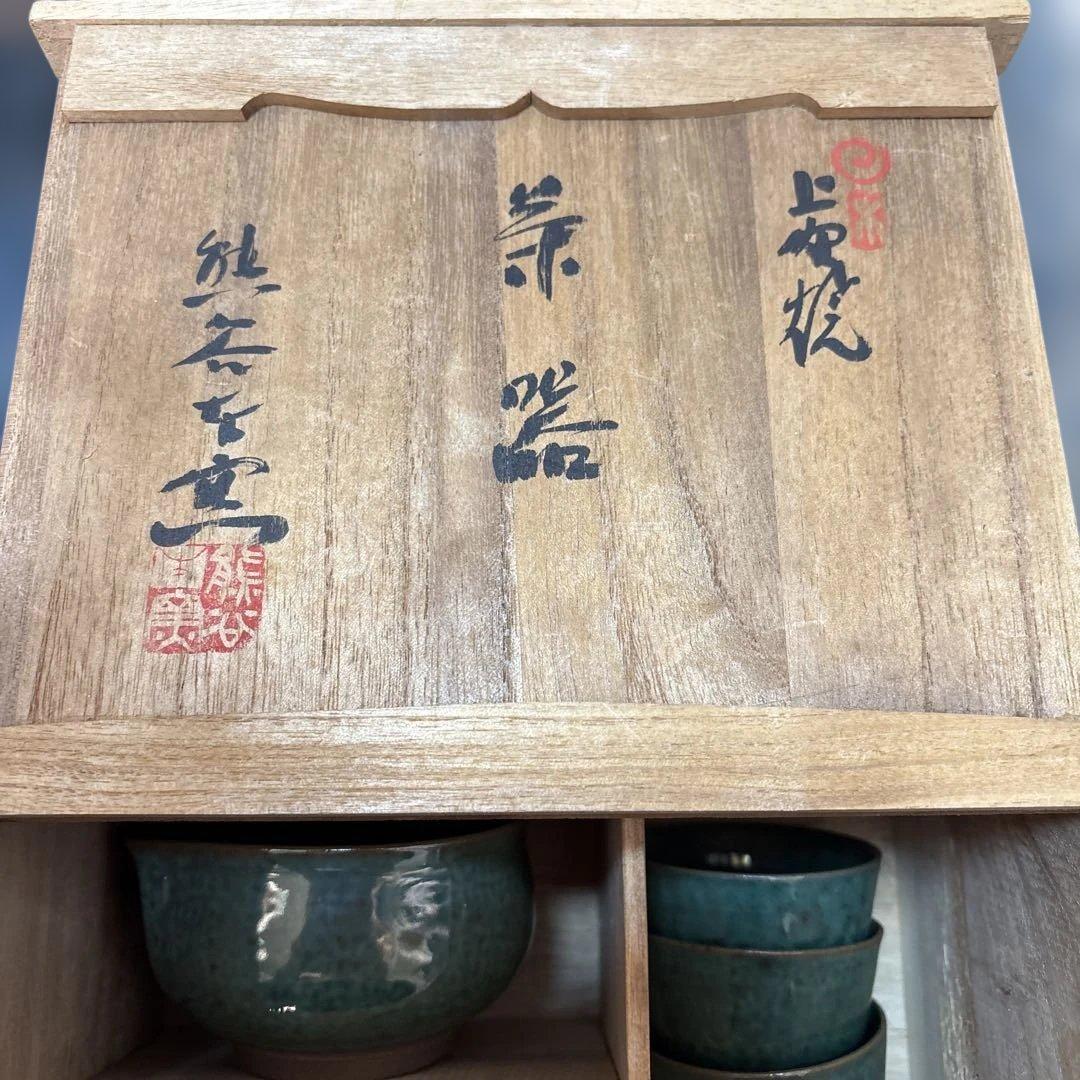 上野焼
茶器
熊谷本窯
熊谷
窯